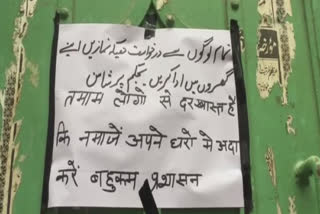 تمام لوگوں سے درخواست ہیکہ نمازیں اپنے
گھروں میں ادا کریں بحکم پرشاسن
तमाम लोगो से दरखास्त है
कि नमाजें अपने घरो मे अदा
करें बाहुक्म प्रशासन